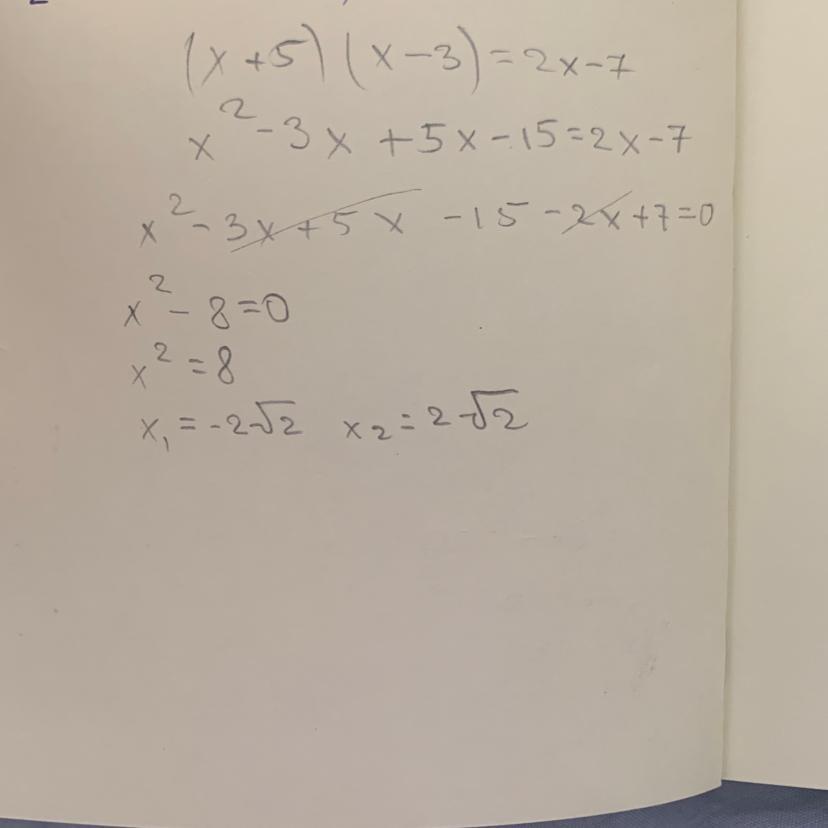 (x+5)(x-3)=2x-7
x²-3x+5x-15=2x-7
x²-3x+5x-15-2x+7=0
x²-8=0
x²=8
x₁=-2√2 x₂=2√2